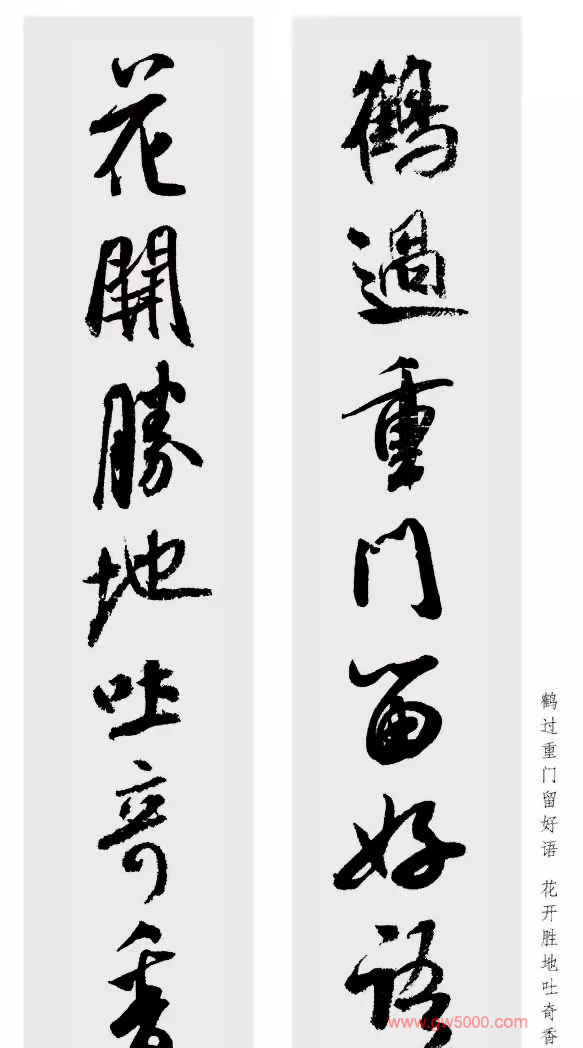 鶴過重門留好語
花開勝地吐奇香
鹤过重门留好语 花开胜地吐奇香
www.qw5000.com